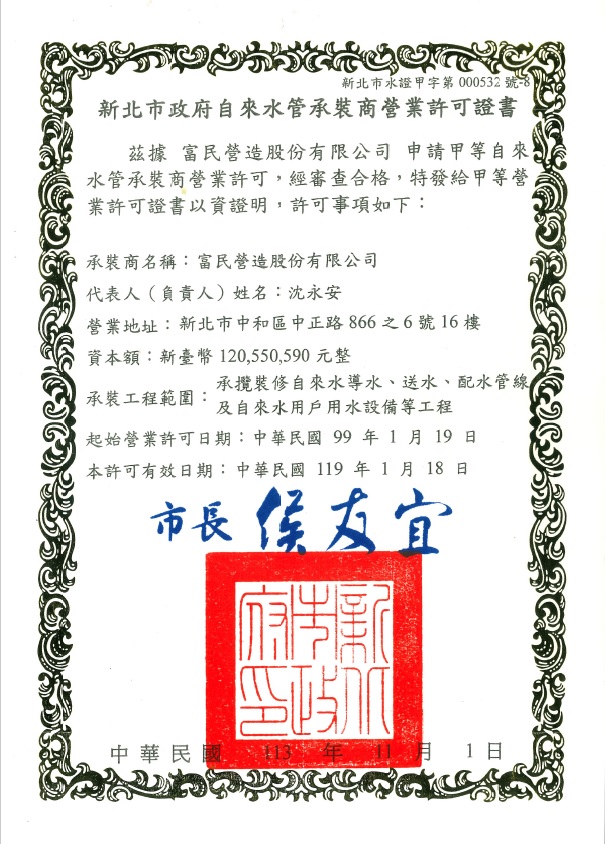 新北市水證甲字第 000532 號-8
新北市政府自來水管承裝商營業許可證書
茲據 富民營造股份有限公司 申請甲等自來
水管承裝商營業許可，經審查合格，特發給甲等營
業許可證書以資證明，許可事項如下：
承裝商名稱：富民營造股份有限公司
代表人（負責人）姓名：沈永安
營業地址：新北市中和區中正路 866 之 6 號 16 樓
資本額：新臺幣 120,550,590 元整
承裝工程範圍：承攬裝修自來水導水、送水、配水管線
及自來水用戶用水設備等工程
起始營業許可日期：中華民國 99 年 1 月 19 日
本許可有效日期：中華民國 119 年 1 月 18 日
市長 侯友宜
新北市政府印
中華民國 113 年 11 月 1 日